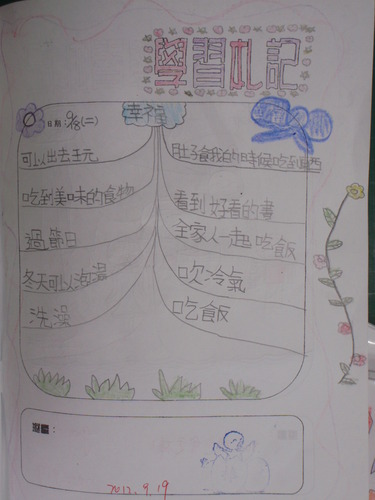 學習札記
日期：9/18(二)
幸福
可以出去玩
吃到美味的食物
過節日
冬天可以泡湯
洗澡
肚子餓的時候吃到東西
看到好看的書
全家人一起吃飯
吹冷氣
吃飯
2012.9.19